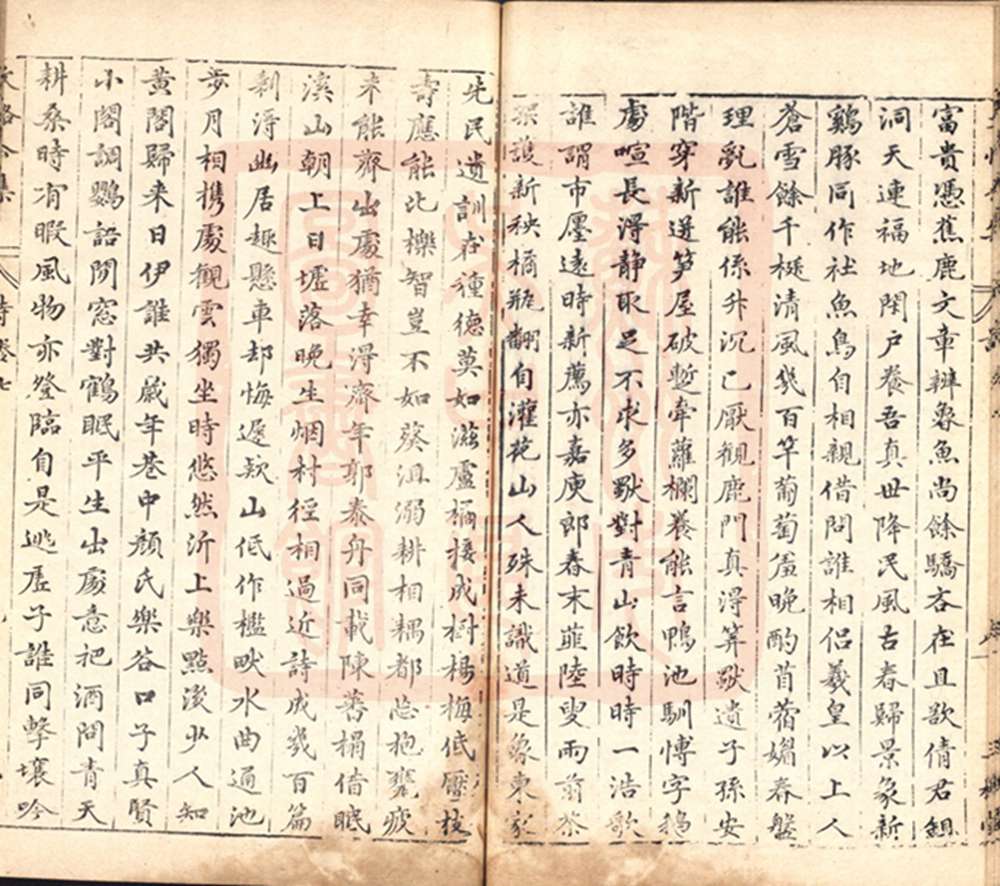 富貴憑蕉鹿文章辨魯魚尚餘驕吝在且欲倩君鋤
洞天連福地閉户養吾真世降民風古春歸景象新
鷄豚同作社魚鳥自相親借問誰相侣羲皇以上人
蒼雪餘千梃清風幾百竿葡萄虛晚酌苜蓿媚春盤
理亂誰能係升沉已厭觀鹿門真淂筭獃遺子孫安
階穿新迸笋屋破蹔牽蘿欄養能言鴨池馴博字鵝
厲喧長淂静取足不求多獸對青山飲時時一浩歌
誰謂市廛遠時新薦亦嘉庾郎春末韮陸叟雨前茶
架護新秧橘瓶翻自灌花山人殊未識道是象東家
先民遺訓在種德莫如滋盧橘接成樹楊梅低壓枝
壽應能比櫟智豈不如葵沮溺耕相耦都忘抱甕疲
未能齊出處猶幸淂齊年郭泰舟同載陳蕃榻借眠
溪山朝上日墟落晚生烟村徑相過近詩成幾百篇
剩淂幽居趣懸車却悔遲欵山低作檻畎水曲通池
步月相携處觀雲獨坐時悠然沂上樂點後少人知
黄閣歸来日伊誰共歲年巷中顔氏樂谷口子真賢
小閣調鸚語閒窓對鶴眠平生出處意把酒問青天
耕桑時有暇風物亦登臨自是逃虛子誰同擊壤吟
詩卷七